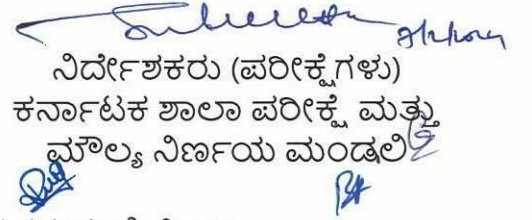 ನಿರ್ದೇಶಕರು (ಪರೀಕ್ಷೆಗಳು)
ಕರ್ನಾಟಕ ಶಾಲಾ ಪರೀಕ್ಷೆ ಮತ್ತು
ಮೌಲ್ಯ ನಿರ್ಣಯ ಮಂಡಲಿ